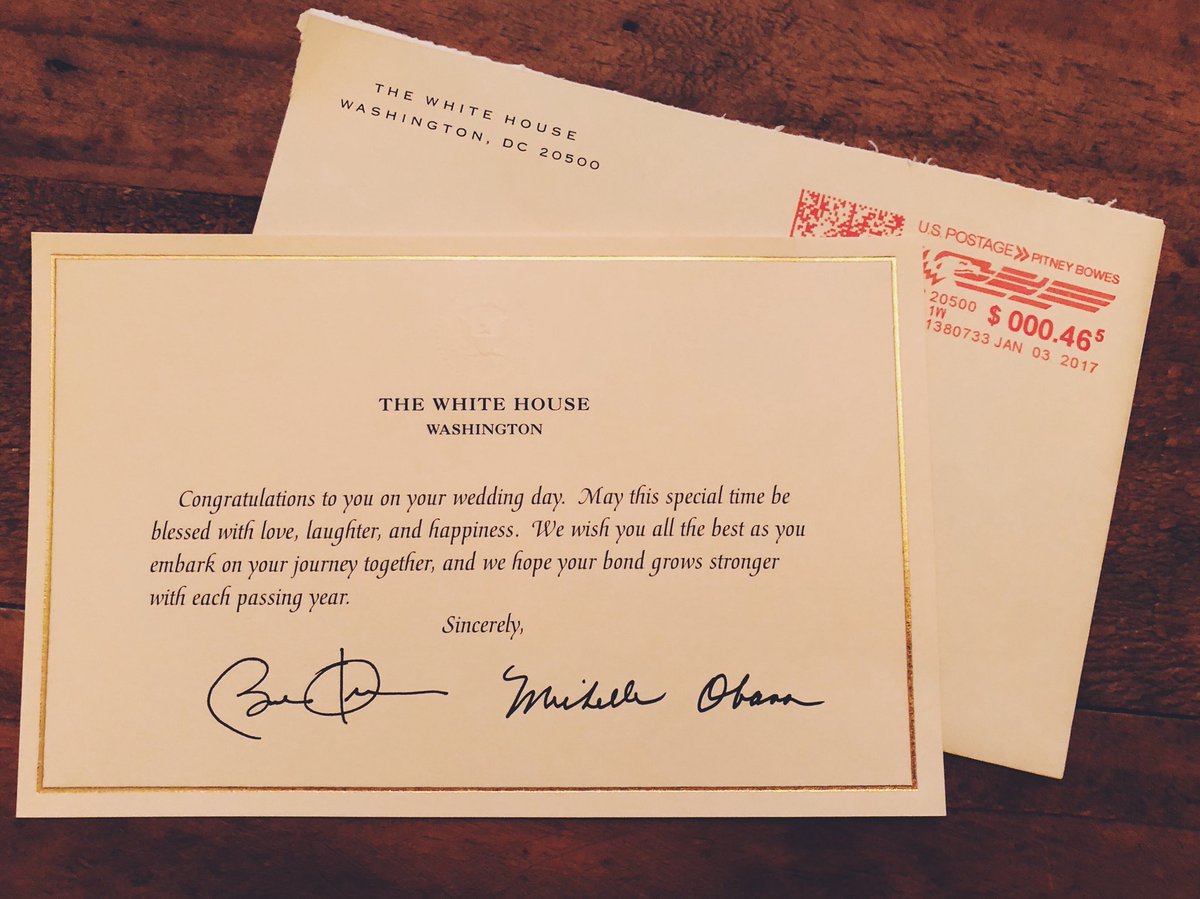 THE WHITE HOUSE
WASHINGTON, DC 20500
U.S. POSTAGE PITNEY BOWES
20500 $ 000.46⁵
1W
1380733 JAN 03 2017
THE WHITE HOUSE
WASHINGTON
Congratulations to you on your wedding day. May this special time be
blessed with love, laughter, and happiness. We wish you all the best as you
embark on your journey together, and we hope your bond grows stronger
with each passing year.
Sincerely,
Michelle Obama